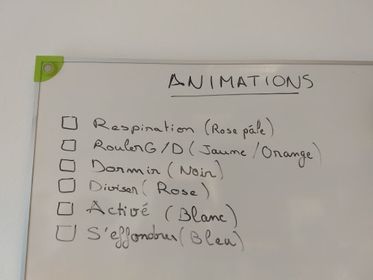 ANIMATIONS
Respiration (Rose pâle)
Rouler G/D (Jaune/Orange)
Dormir (Noir)
Diviser (Rose)
Activé (Blanc)
S'effondrer (Bleu)